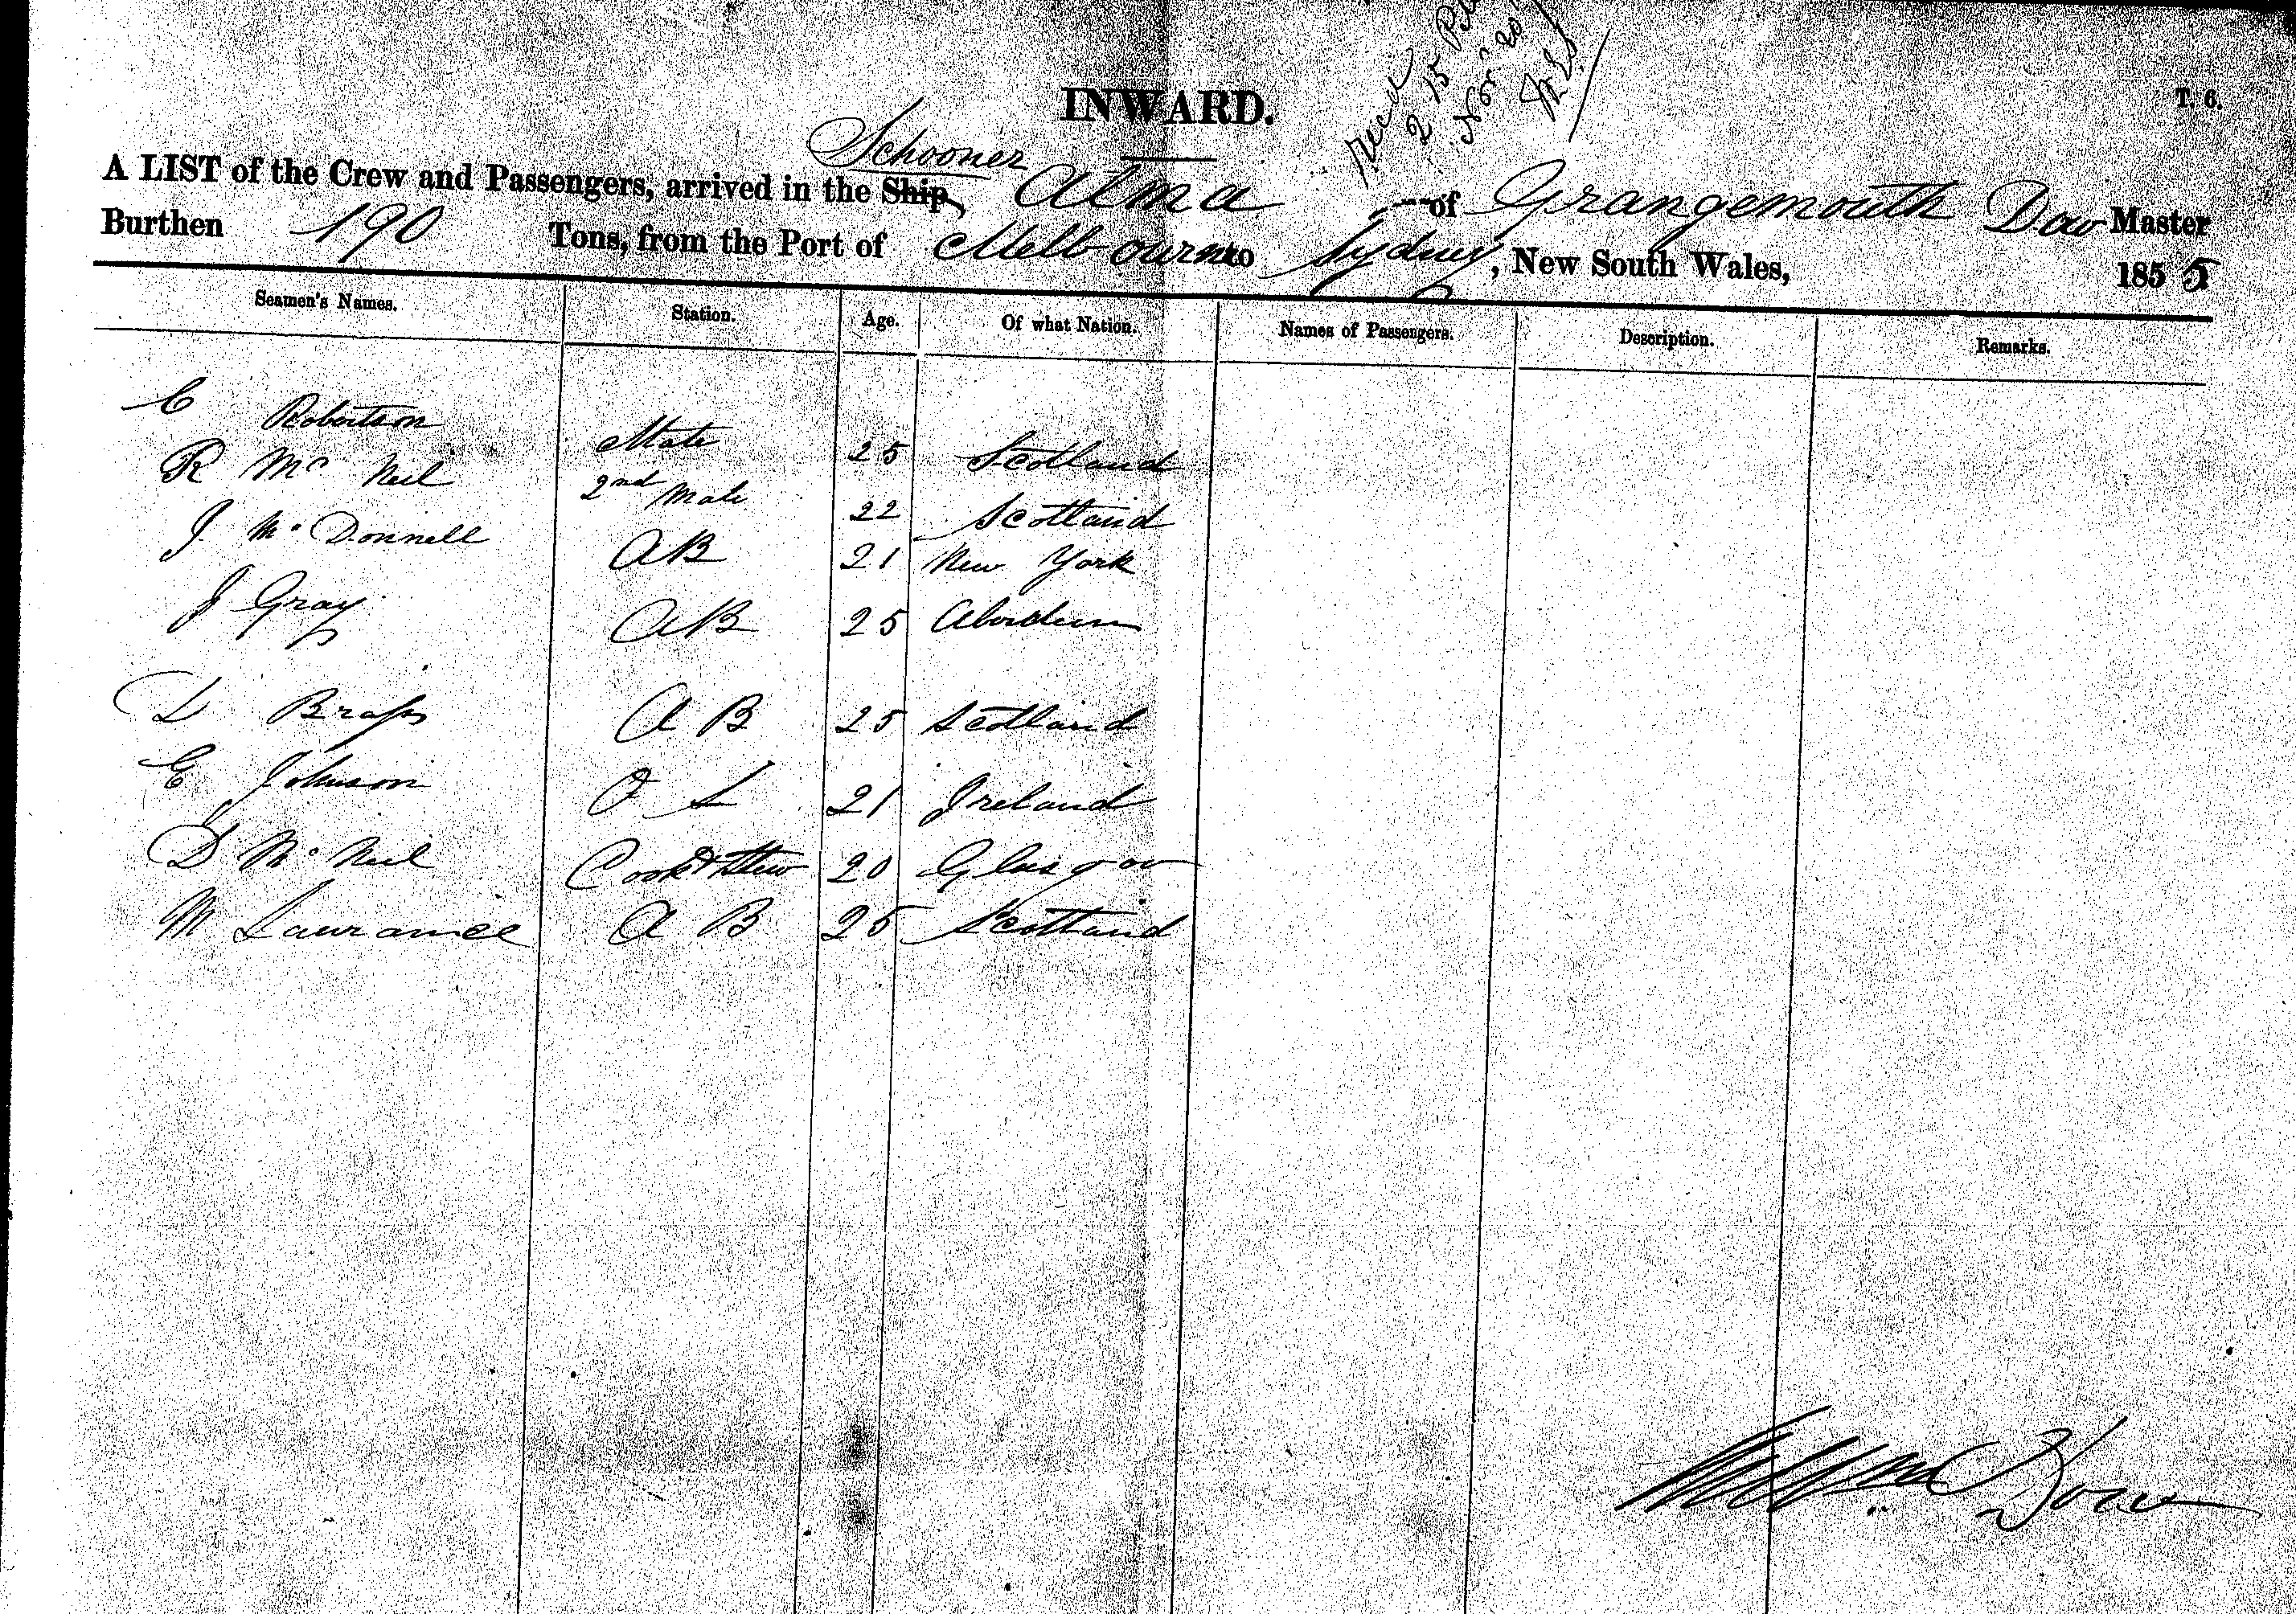 INWARD.
T. 6.
2 15 P
Nov 20
Schooner
A LIST of the Crew and Passengers, arrived in the Ship, Alma of Grangemouth Dow Master
Burthen 190 Tons, from the Port of Melbourne to Sydney, New South Wales, 1855
Seamen's Names. Station. Age. Of what Nation. Names of Passengers. Description. Remarks.
C Robertson Mate 25 Scotland
R Mc Neil 2nd Mate 22 Scotland
J Mc Donnell AB 21 New York
J Gray AB 25 Aberdeen
D Brass A B 25 Scotland
E Johnson O S 21 Ireland
D Mc Neil Cook & Stew 20 Glasgow
M Lawrance A B 25 Scotland
Dow